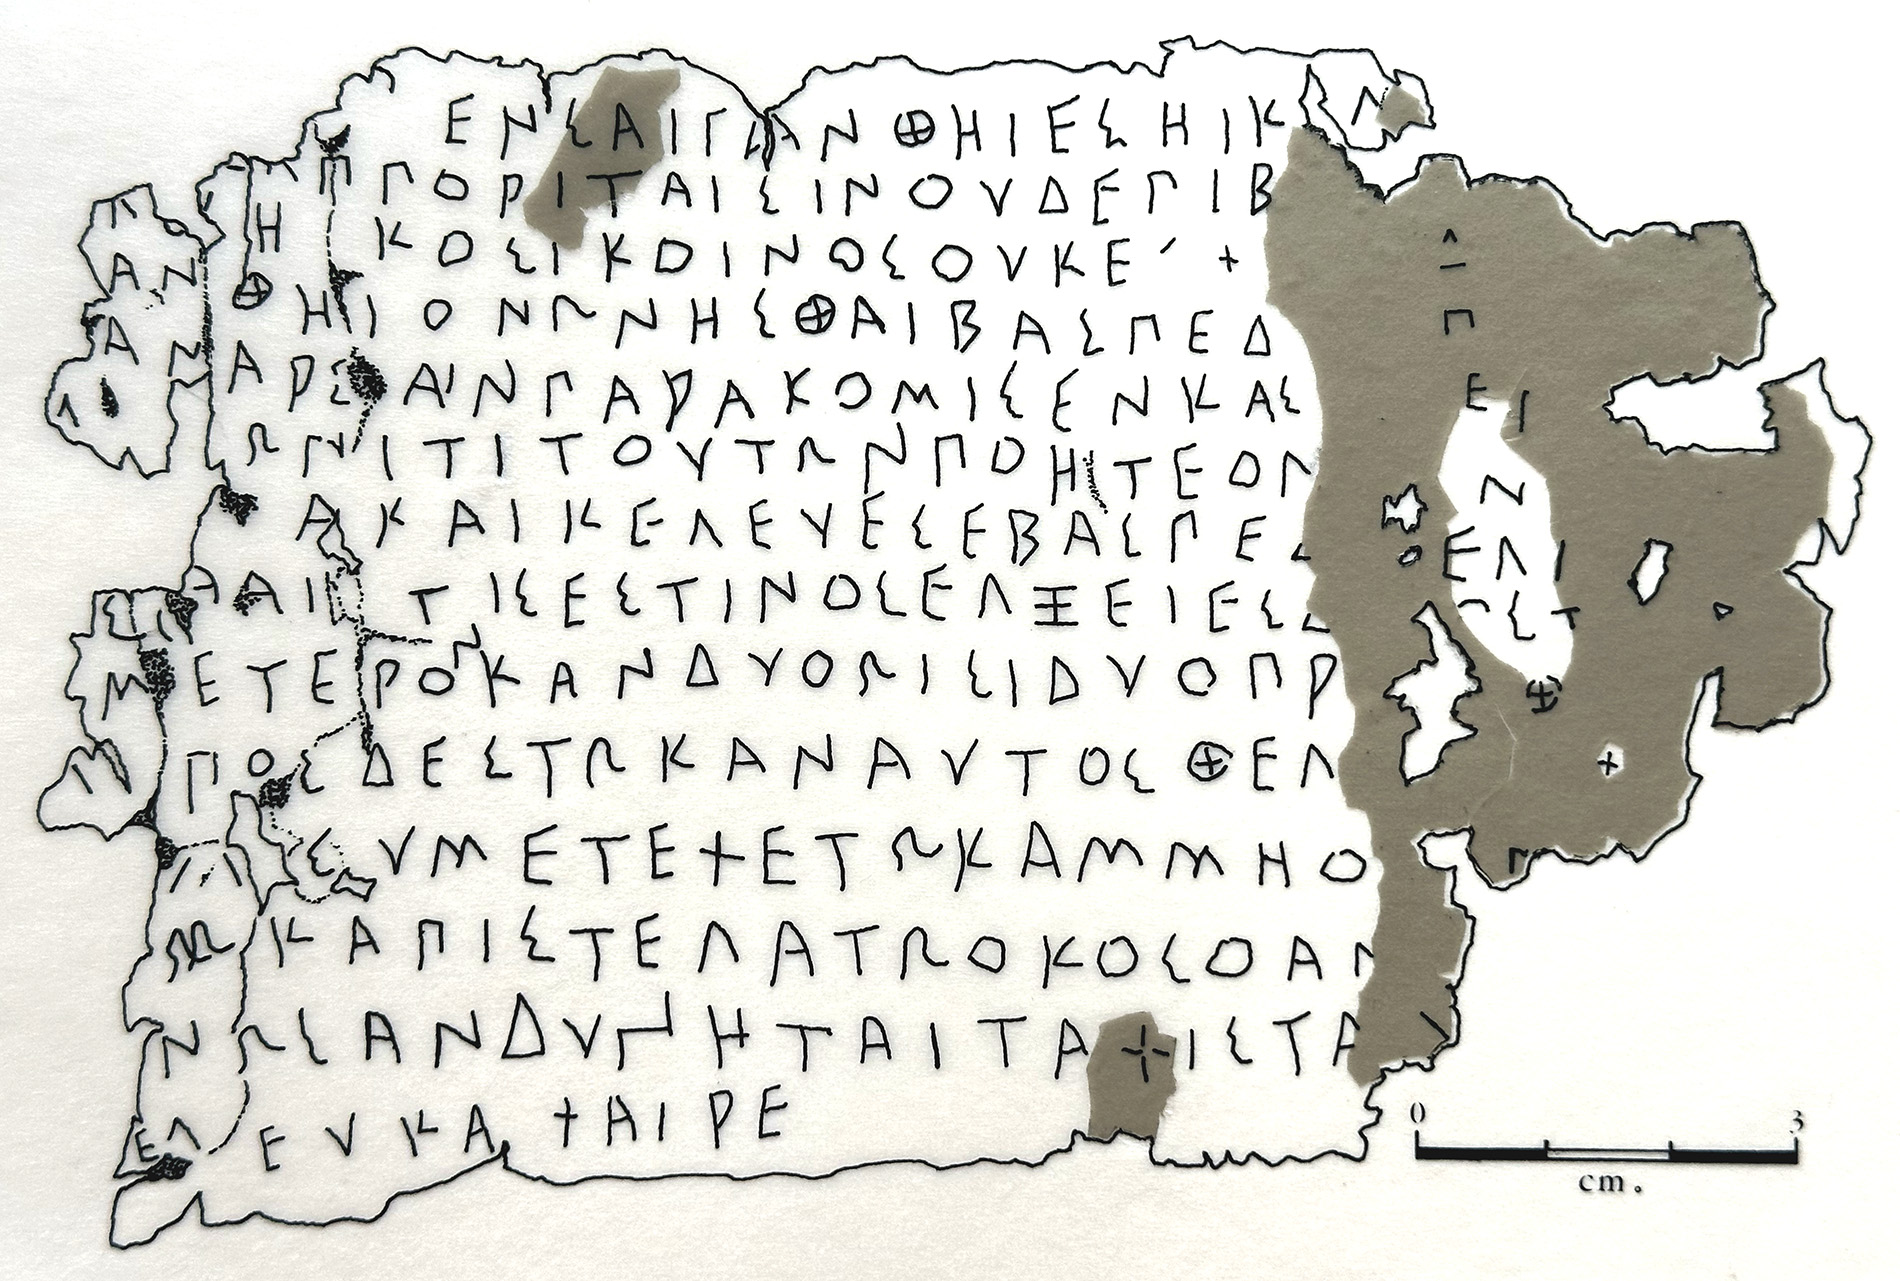 ΕΝΣΑΙΓΑΝΘΗΙΕΣΗΙΚΛ
Π ΓΟΡΙΤΑΙΣΙΝΟΥΔΕΠΙΒ
Η ΚΟΣΙΚΟΙΝΟΣΟΥΚΕ Χ
ΑΝΘΗΙΟΝΩΝΗΣΘΑΙΒΑΣΠΕΔ Π
ΑΝΑΡΣΑΙΝΠΑΡΑΚΟΜΙΣΕΝΚΑΣ ΕΙ
ΩΠΙΤΙΤΟΥΤΩΝΠΟΗΙΤΕΟΝ Ν
ΑΚΑΙΚΕΛΕΥΕΣΕΒΑΣΠΕΔ ΕΛΙ
ΑΙ ΤΙΣΕΣΤΙΝΟΣΕΛΞΕΙΕΣΔ ΣΤ
ΜΕΤΕΡΟΝΚΑΝΔΥΟΩΙΣΙΔΥΟΠΡ Θ
ΠΟΣΔΕΣΤΩΚΑΝΑΥΤΟΣΘΕΛ Χ
ΣΥΜΕΤΕΧΕΤΩΚΑΜΜΗΟ Γ
ΩΚΑΠΙΣΤΕΛΑΤΩΟΚΟΣΟΑΝ
ΝΩΣΑΝΔΥΝΗΤΑΙΤΑΧΙΣΤΑ
ΕΛΕΥΚΑ ΧΑΙΡΕ
0 3
cm.